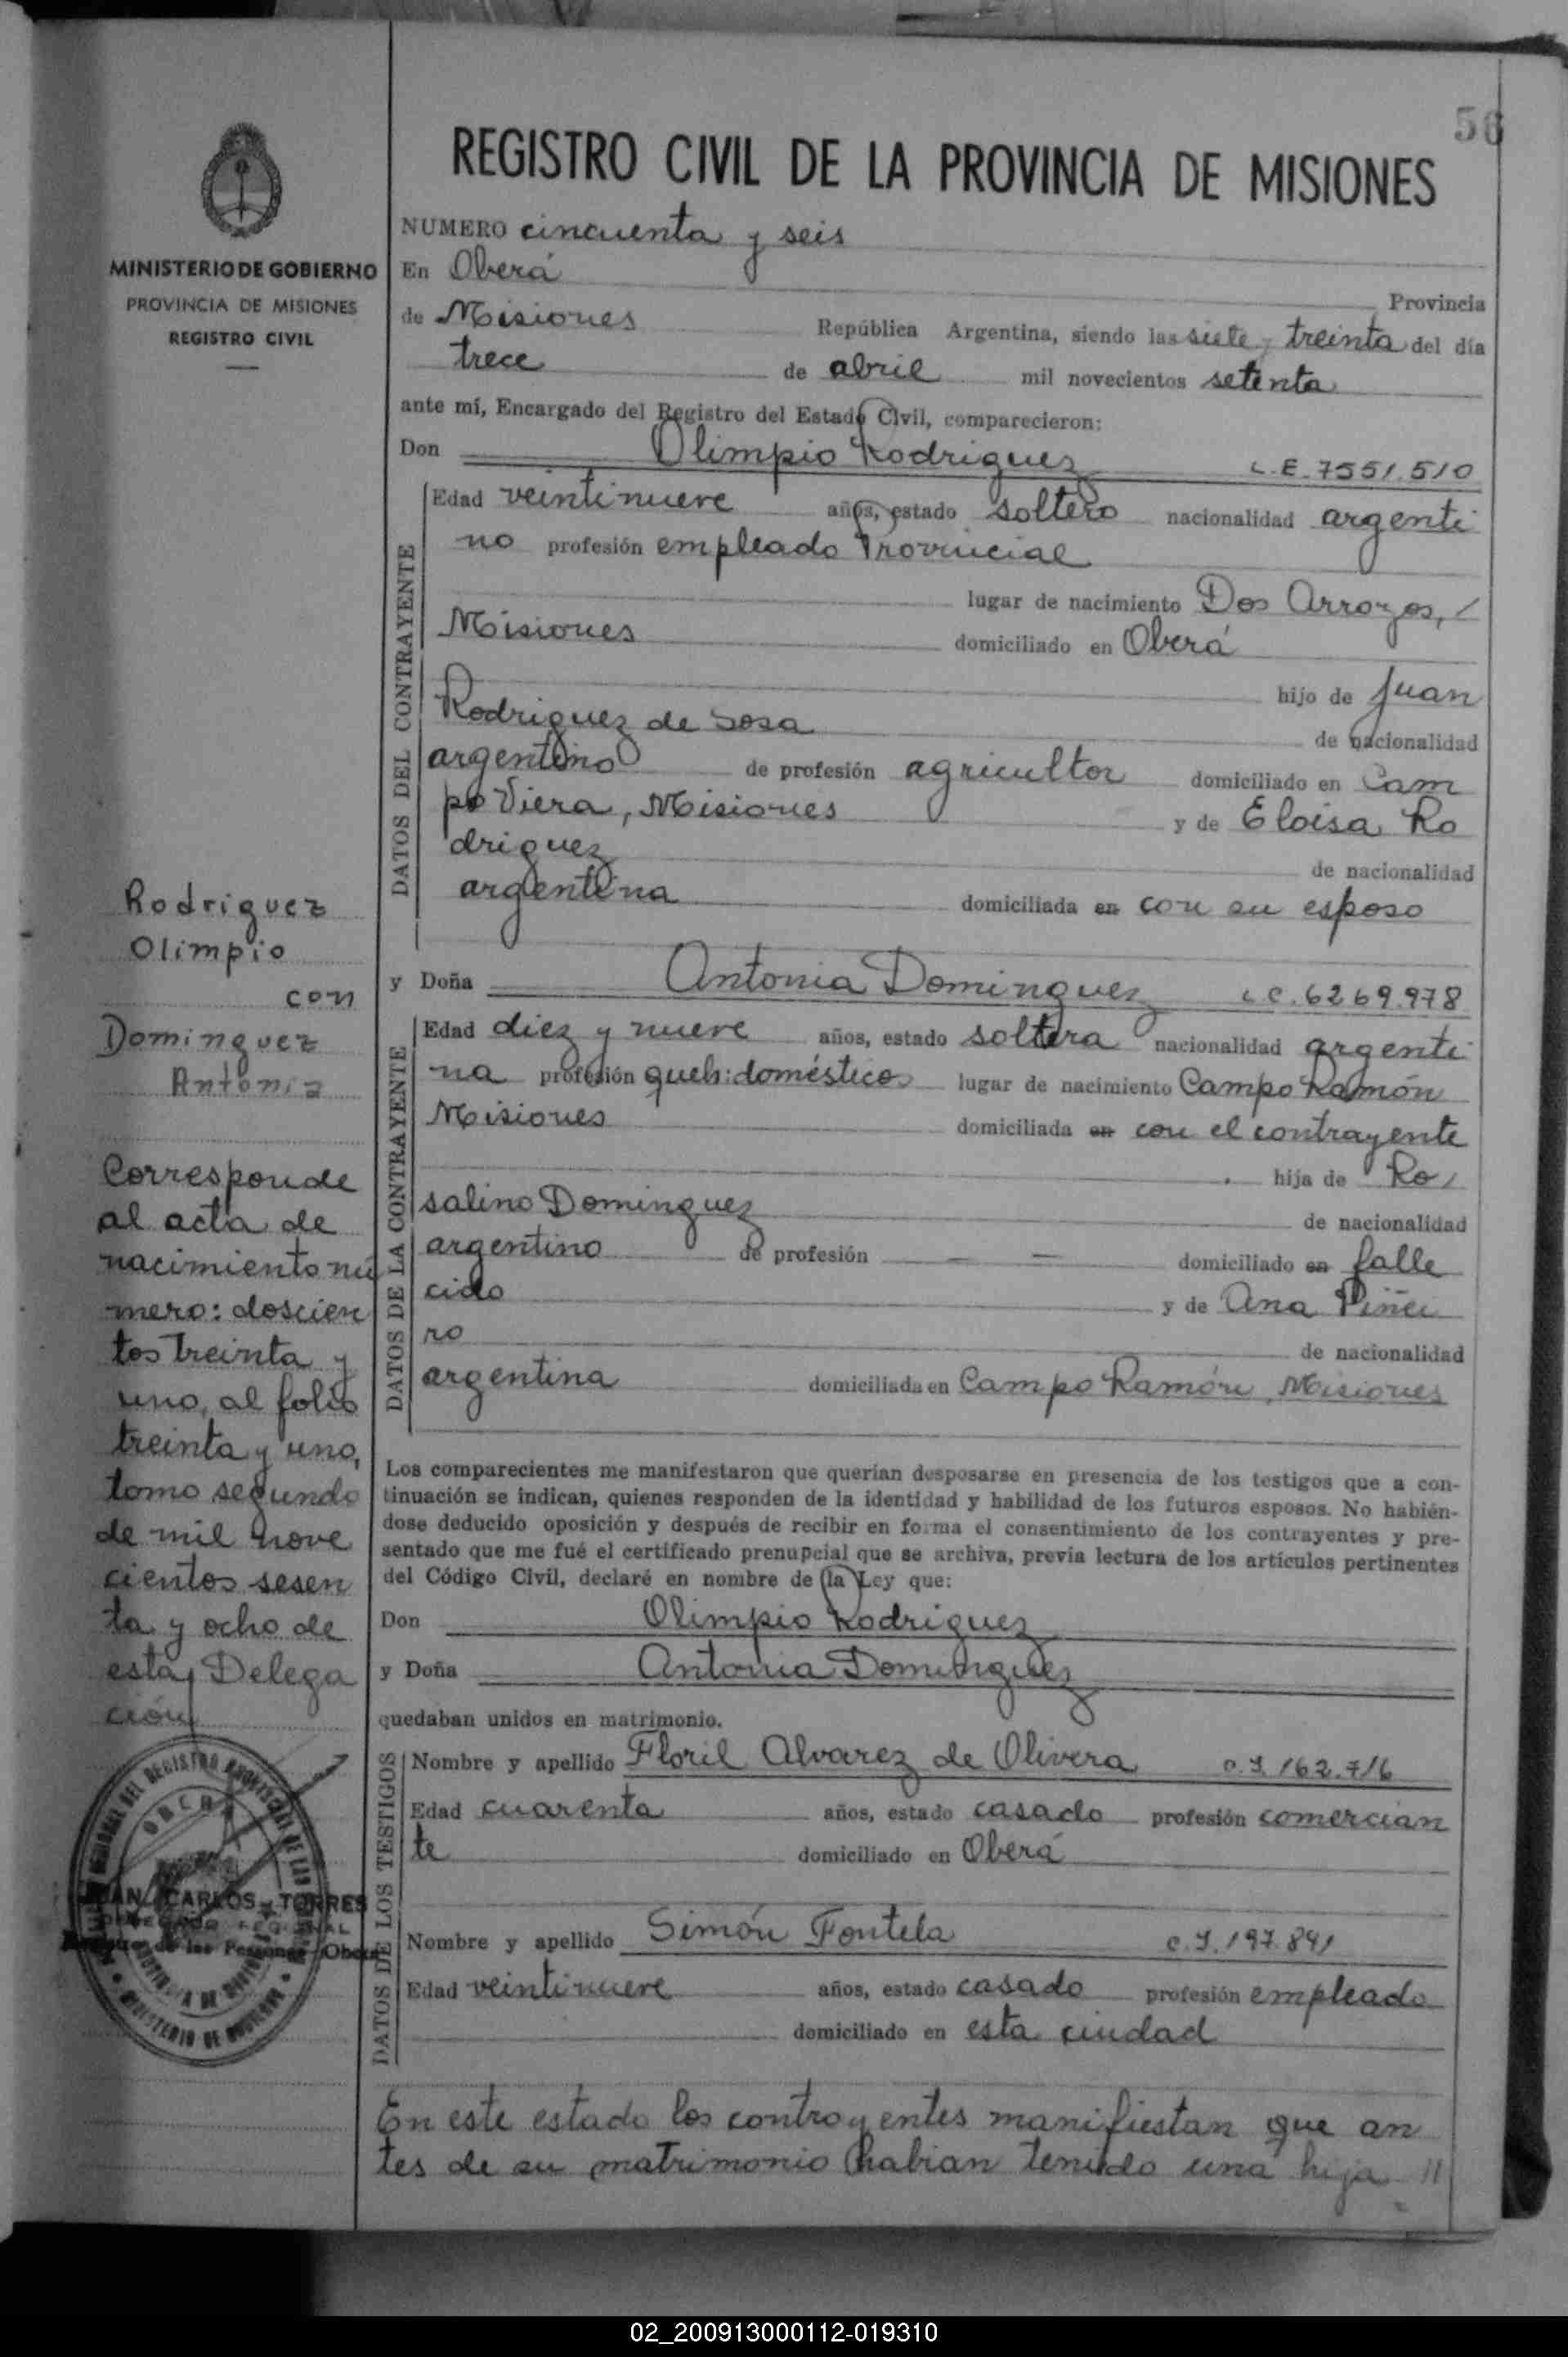 56
REGISTRO CIVIL DE LA PROVINCIA DE MISIONES
MINISTERIO DE GOBIERNO
PROVINCIA DE MISIONES
REGISTRO CIVIL
NUMERO cincuenta y seis
En Oberá Provincia
de Misiones República Argentina, siendo las siete y treinta del día
trece de abril mil novecientos setenta
ante mí, Encargado del Registro del Estado Civil, comparecieron:
Don Olimpio Rodriguez L.E. 7551.510
DATOS DEL CONTRAYENTE
Edad veintinueve años, estado soltero nacionalidad argenti
no profesión empleado Provincial
lugar de nacimiento Dos Arroyos,
Misiones domiciliado en Oberá
hijo de Juan
Rodriguez de Sosa de nacionalidad
argentino de profesión agricultor domiciliado en Cam
po Viera, Misiones y de Eloisa Ro
driguez de nacionalidad
argentina domiciliada en con su esposo
y Doña Antonia Dominguez L.C. 6269.978
DATOS DE LA CONTRAYENTE
Edad diez y nueve años, estado soltera nacionalidad argenti
na profesión queh: domésticos lugar de nacimiento Campo Ramón
Misiones domiciliada en con el contrayente
hija de Ro
salino Dominguez de nacionalidad
argentino de profesión — — domiciliado en falle
cido y de Ana Piñei
ro de nacionalidad
argentina domiciliada en Campo Ramón, Misiones
Los comparecientes me manifestaron que querían desposarse en presencia de los testigos que a con-
tinuación se indican, quienes responden de la identidad y habilidad de los futuros esposos. No habién-
dose deducido oposición y después de recibir en forma el consentimiento de los contrayentes y pre-
sentado que me fué el certificado prenupcial que se archiva, previa lectura de los artículos pertinentes
del Código Civil, declaré en nombre de la Ley que:
Don Olimpio Rodriguez
y Doña Antonia Dominguez
quedaban unidos en matrimonio.
DATOS DE LOS TESTIGOS
Nombre y apellido Floril Alvarez de Olivera C.I. 162.716
Edad cuarenta años, estado casado profesión comercian
te domiciliado en Oberá
Nombre y apellido Simón Fontela C.I. 197.841
Edad veintinueve años, estado casado profesión empleado
domiciliado en esta ciudad
En este estado los contrayentes manifiestan que an
tes de su matrimonio habian tenido una hija //
Rodriguez
Olimpio
con
Dominguez
Antonia
Corresponde
al acta de
nacimiento nú
mero: doscien
tos treinta y
uno, al folio
treinta y uno,
tomo segundo
de mil nove
cientos sesen
ta y ocho de
esta Delega
ción
JUAN CARLOS TORRES
DELEGADO REGIONAL
02_200913000112-019310